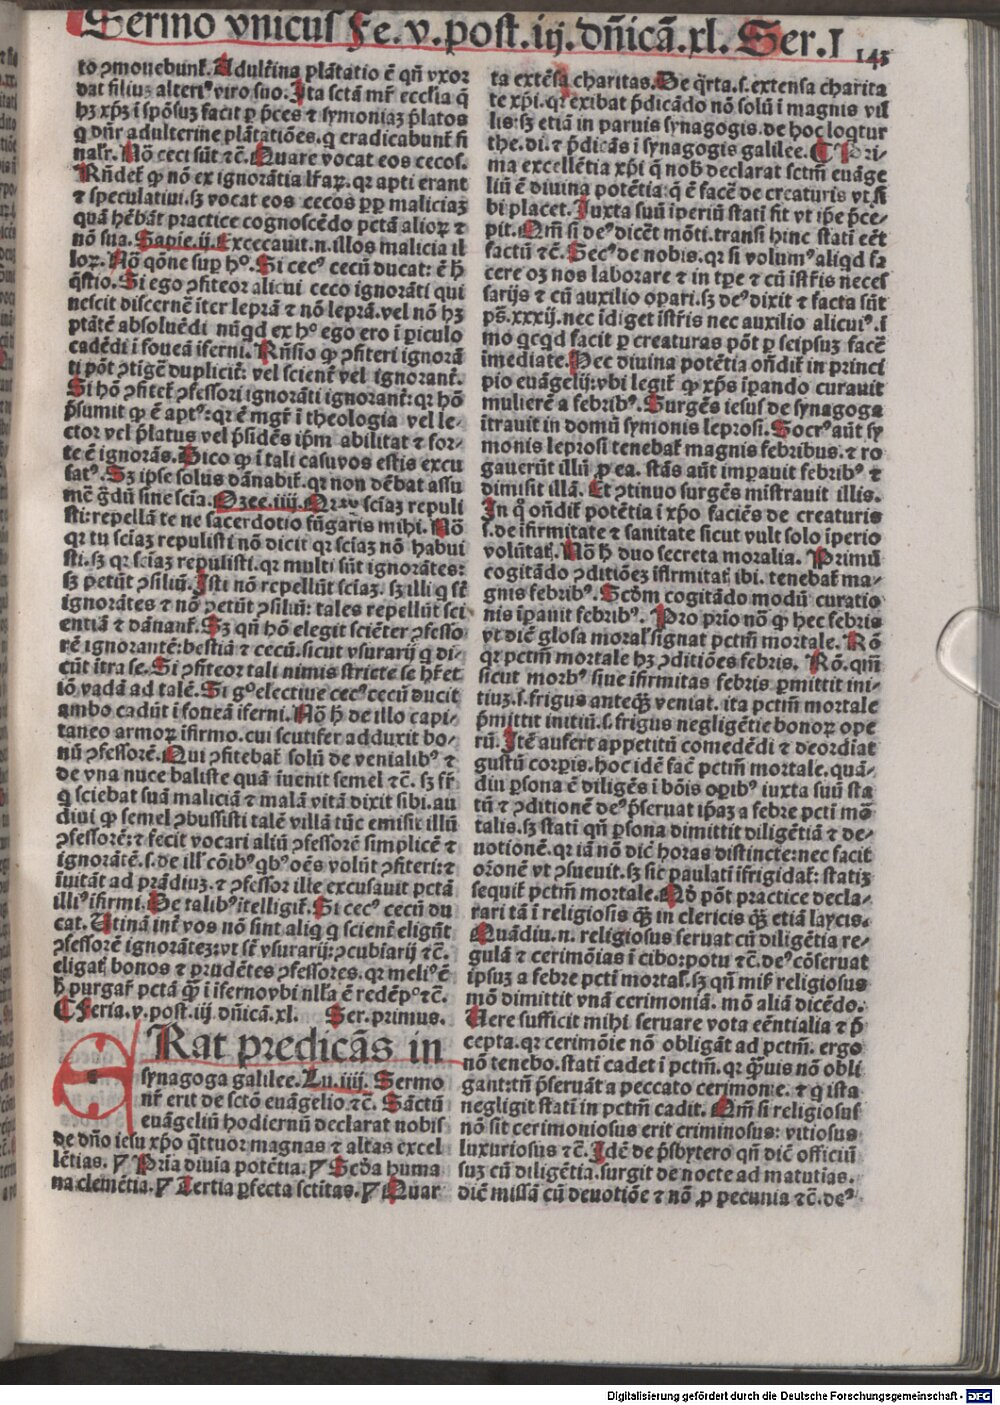 Sermo vnicus Fe.v.post.iij.dñicã.xl. Ser.I
143
to ꝯmouebunt̃. Adult̃ina plãtatio ẽ qñ vxor
dat filius alteriꝰ viro suo. Ita sctã mr̃ ecclia q̃
hꝫ xp̃ꝫ ĩ spõsuꝫ facit ꝑ p̃ces ⁊ symoniaꝫ p̃latos
q dñr adulterine plãtatiões. q eradicabunt̃ fi
nalr̃. Nõ ceci sũt ⁊c̃. Quare vocat eos cecos.
Rñdet̃ ꝙ nõ ex ignorãtia lr̃aꝝ. qꝛ apti erant
⁊ speculatiui. sꝫ vocat eos cecos ꝓp maliciaꝫ
quã hẽbãt practice cognoscẽdo pctã alioꝝ ⁊
nõ sua. Sapie.ij. Excecauit.n. illos malicia il
loꝝ. Nõ qõne suꝑ hº. Si cecꝰ cecũ ducat: ẽ h̃
q̃stio. Si ego ꝯfiteor alicui ceco ignorãti qui
nescit discernẽ ĩter leprã ⁊ nõ leprã. vel nõ hꝫ
ptãtẽ absoluẽdi nũqd ex hº ego ero ĩ ꝑiculo
cadẽdi ĩ foueã ĩferni. Rñsio ꝙ ꝯfiteri ignorã
ti põt ꝯtigẽ duplicit̃: vel scient̃ vel ignorant̃.
Si hõ ꝯfitet̃ ꝯfessori ignorãti ignorant̃: qꝛ hõ
p̃sumit ꝙ ẽ aptꝰ: qꝛ ẽ mgr̃ ĩ theologia vel le-
ctor vel p̃latus vel p̃sidẽs ip̃m abilitat ⁊ for-
te ẽ ignorãs. Dico ꝙ ĩ tali casu vos estis excu
satꝰ. Sꝫ ipse solus dãnabit̃. qꝛ non dẽbat assu
mẽ g̃dũ sine scĩa. Ozee.iiij. Qꝛ tu scĩaꝫ repuli
sti: repellã te ne sacerdotio fũgaris mihi. Nõ
qꝛ tu scĩaꝫ repulisti nõ dicit qꝛ scĩaꝫ nõ habui
sti. sꝫ qꝛ scĩaꝫ repulisti. qꝛ multi sũt ignorãtes:
sꝫ petũt ꝯsiliũ. Isti nõ repellũt scĩaꝫ. sꝫ illi q st̃
ignorãtes ⁊ nõ petũt ꝯsiliũ: tales repellũt sci
entiã ⁊ dãnant̃. Sꝫ qñ hõ elegit sciẽter ꝯfesso
rẽ ignorantẽ: bestiã ⁊ cecũ. sicut vsurarij q di-
cũt ĩtra se. Si ꝯfiteor tali nimis stricte se hr̃et
iõ vadã ad talẽ. Si gº electiue cecꝰ cecũ ducit
ambo cadũt ĩ foueã ĩferni. Nõ h̃ de illo capi-
taneo armoꝝ ĩfirmo. cui scutifer adduxit bo-
nũ ꝯfessorẽ. Qui ꝯfitebat̃ solũ de venialibꝰ ⁊
de vna nuce baliste quã ĩuenit semel ⁊c̃. sꝫ fr̃
q sciebat suã maliciã ⁊ malã vitã dixit sibi. au
diui ꝙ semel ꝯbussisti talẽ villã tũc emisit illũ
ꝯfessorẽ: ⁊ fecit vocari aliũ ꝯfessorẽ simplicẽ ⁊
ignorãtẽ. s. de ill̃ cõibꝰ qbꝰ oẽs volũt ꝯfiteri: ⁊
ĩuitãt ad prãdiuꝫ. ⁊ ꝯfessor ille excusauit pctã
illiꝰ ĩfirmi. De talibꝰ ĩtelligit̃. Si cecꝰ cecũ du
cat. Utinã int̃ vos nõ sint aliq q scient̃ eligũt
ꝯfessorẽ ignorãteꝫ: vt st̃ vsurarij: ꝯcubiarij ⁊c̃.
eligat̃ bonos ⁊ prudẽtes ꝯfessores. qꝛ meliꝰ ẽ
h̃ purgar̃ pctã q̃ȝ ĩ ĩferno vbi nll̃a ẽ redẽpº ⁊c̃.
¶ Feria.v.post.iij.dñicã.xl. Ser.primus.
ERat predicãs in
synagoga galilee. Lu.iiij. Sermo
nr̃ erit de sctõ euãgelio ⁊c̃. Sãctũ
euãgeliũ hodiernũ declarat nobis
de dño iesu xp̃o q̃ttuor magnas ⁊ altas excel
lẽtias. ℣ Pria diuia potẽtia. ℣ Secõa huma
na clemẽtia. ℣ Tertia ꝑfecta sctĩtas. ℣ Quar
ta extẽsa charitas. De q̃rta. s. extensa charita
te xp̃i. qꝛ exibat p̃dicãdo nõ solũ ĩ magnis vil
lis: sꝫ etiã in paruis synagogis. de hoc loqtur
the. di. ⁊ p̃dicãs ĩ synagogis galilee. ¶ Pri-
ma excellẽtia xp̃i q̃ nob̃ declarat sctm̃ euãge
liũ ẽ diuina potẽtia: q̃ ẽ facẽ de creaturis vt si
bi placet. Iuxta suũ ĩperiũ stati fit vt ip̃e p̃ce-
pit. Qm̃ si deꝰ dicẽt mõti. transi hinc stati eẽt
factũ ⁊c̃. Secꝰ de nobis. qꝛ si volumꝰ aliqd fa
cere oꝫ nos laborare ⁊ in tp̃e ⁊ cũ ĩstr̃is neces
sarijs ⁊ cũ auxilio oꝑari. sꝫ deꝰ dixit ⁊ facta sũt
ps̃.xxxij. nec ĩdiget ĩstr̃is nec auxilio alicuiꝰ. ĩ
mo qcqd facit ꝑ creaturas põt ꝑ seipsuꝫ facẽ
ĩmediate. Hec diuina potẽtia oñdit̃ in princi
pio euãgelij: vbi legit̃ ꝙ xp̃s ĩperando curauit
mulierẽ a febribꝰ. Surgẽs iesus de synagoga
ĩtrauit in domũ symonis leprosi. Socrꝰ aũt sy
monis leprosi tenebat̃ magnis febribus. ⁊ ro
gauerũt illũ ꝓ ea. stãs aũt imꝑauit febribꝰ ⁊
dimisit illã. Et ꝯtinuo surgẽs mĩstrauit illis.
In q̊ oñdit̃ potẽtia ĩ xp̃o faciẽs de creaturis
s. de ĩfirmitate ⁊ sanitate sicut vult solo ĩperio
volũtat̃. Nõ h̃ duo secreta moralia. Primũ
cogitãdo ꝯditiões ĩfirmitat̃ ibi. tenebat̃ ma-
gnis febribꝰ. Secõm cogitãdo modũ curatio
nis ĩpauit febribꝰ. Pro prio nõ q̃ hec febris
vt dicẽ glosa moral̃ signat pctm̃ mortale. Rõ
qꝛ pctm̃ mortale hꝫ ꝯditiões febris. Rõ. qm̃
sicut morbꝰ siue ĩfirmitas febris ꝑmittit ini-
tiuꝫ. s. frigus anteq̃ȝ veniat. ita pctm̃ mortale
p̃mittit initiũ. s. frigus negligẽtie bonoꝝ ope
rũ. Itẽ aufert appetitũ comedẽdi ⁊ deordĩat
gustũ corꝑis. hoc idẽ fac̃ pctm̃ mortale. quã-
diu ꝑsona ẽ diligẽs ĩ bõis oꝑibꝰ iuxta suũ sta
tũ ⁊ ꝯditionẽ deꝰ p̃seruat ip̃aꝫ a febre pcti mo
talis. sꝫ stati qñ ꝑsona dimittit diligẽtiã ⁊ de-
uotionẽ. qꝛ iã nõ dic̃ horas distincte: nec facit
orõnẽ vt ꝯsueuit. sꝫ sic paulati ĩfrigidat̃: statiꝫ
sequit̃ pctm̃ mortale. Nõ põt practice decla-
rari tã ĩ religiosis q̃ȝ in clericis q̃ȝ etiã laycis.
Quãdiu.n. religiosus seruat cũ diligẽtia re-
gulã ⁊ cerimõias ĩ cibo: potu ⁊c̃. deꝰ cõseruat
ipsuꝫ a febre pcti mortal̃. sꝫ qñ mis̃ religiosus
mõ dimittit vnã cerimoniã. mõ aliã dicẽdo.
Vere sufficit mihi seruare vota eẽntialia ⁊ p̃
cepta. qꝛ cerimõie nõ obligãt ad pctm̃. ergo
nõ tenebo. stati cadet ĩ pctm̃. qꝛ q̃uis nõ obli
gant: tñ p̃seruãt a peccato cerimonie. ⁊ q ista
negligit stati in pctm̃ cadit. Qm̃ si religiosus
nõ sit cerimoniosus erit criminosus: vitiosus
luxuriosus ⁊c̃. Idẽ de p̃sbytero qñ dic̃ officiũ
suꝫ cũ diligẽtia. surgit de nocte ad matutias.
dic̃ missã cũ deuotiõe ⁊ nõ ꝓ pecunia ⁊c̃. deꝰ
Digitalisierung gefördert durch die Deutsche Forschungsgemeinschaft - DFG